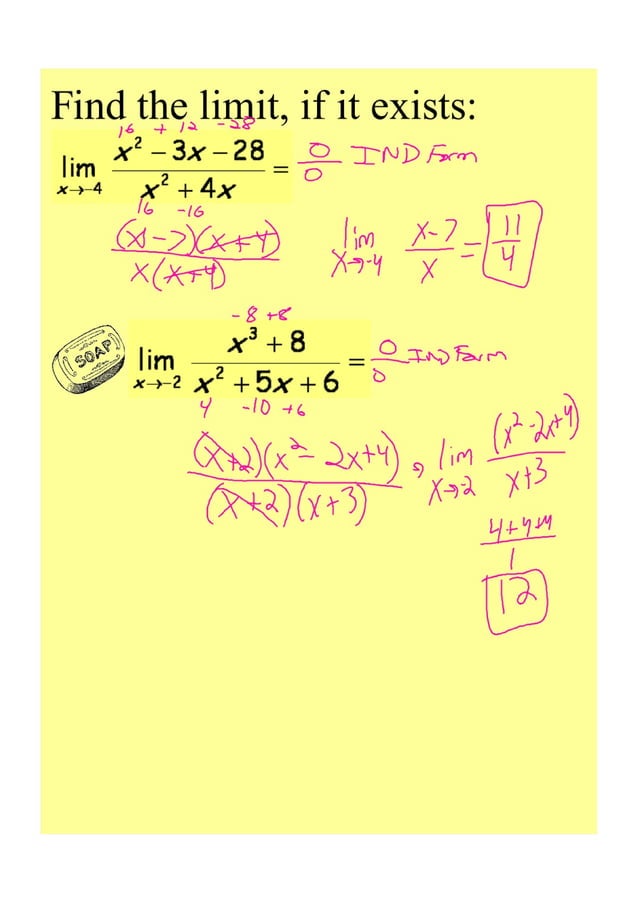 Find the limit, if it exists:
16 + 12 -28
lim x→-4 (x² - 3x - 28)/(x² + 4x) = 0/0 IND Form
16 -16
(x-7)(x+4)/x(x+4) lim x→-4 (x-7)/x = 11/4
-8 +8
SOAP lim x→-2 (x³ + 8)/(x² + 5x + 6) = 0/0 IND Form
4 -10 +6
(x+2)(x² - 2x+4)/(x+2)(x+3) , lim x→-2 (x² - 2x+4)/(x+3)
4+4+4
1
12